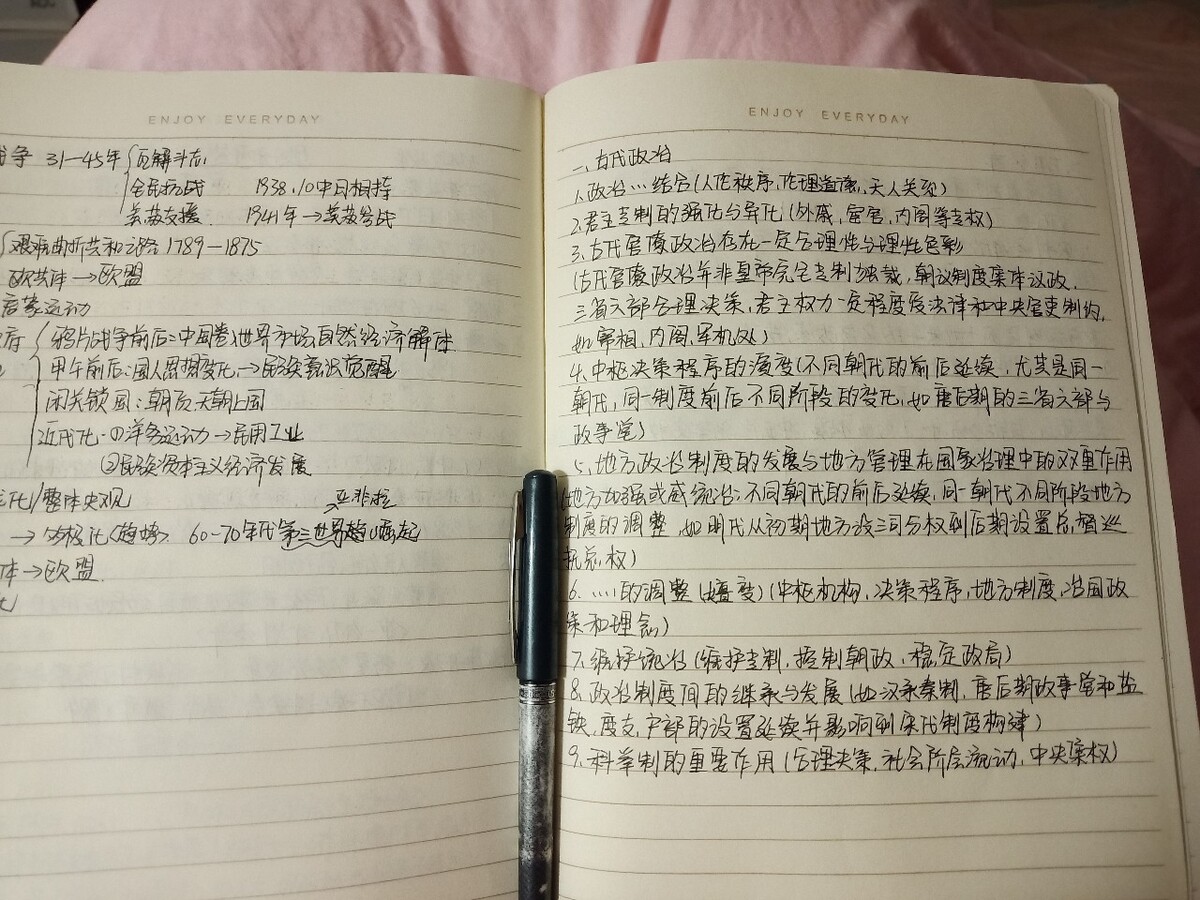 ENJOY EVERYDAY
战争 31—45年 瓦解斗志
全民抗战 1938.10中日相持
美苏支援 1941年→美苏参战
艰难曲折共和之路 1789—1875
欧共体→欧盟
启蒙运动
鸦片战争前后:中国卷入世界市场,自然经济解体
甲午前后:国人思想变化→民族意识觉醒
闭关锁国:朝贡、天朝上国
近代化:①洋务运动→民用工业
②民族资本主义经济发展
/整体史观
亚非拉
→多极化<趋势> 60-70年代第三世界崛起
体→欧盟
ENJOY EVERYDAY
一、古代政治
1.政治…结合(人伦秩序,伦理道德,天人关系)
2.君主专制的强化与异化(外戚,宦官,内阁等专权)
3.古代官僚政治存在一定合理性与理性色彩
(古代官僚政治并非皇帝完全专制独裁,朝议制度集体议政,
三省六部合理决策,君主权力一定程度受法律和中央官吏制约,
如宰相,内阁,军机处)
4.中枢决策程序的演变(不同朝代的前后延续,尤其是同一
朝代,同一制度前后不同阶段的变化,如唐后期的三省六部与
政事堂)
5.地方政治制度的发展与地方管理在国家治理中的双重作用
(地方加强或威胁统治:不同朝代的前后延续,同一朝代不同阶段地方
制度的调整,如明代从初期地方设三司分权到后期设置总督巡
抚总权)
6.……的调整(嬗变)(中枢机构,决策程序,地方制度,治国政
策和理念)
7.维护统治(维护专制,控制朝政,稳定政局)
8.政治制度间的继承与发展(如汉承秦制,唐后期政事堂和盐
铁,度支,户部的设置延续并影响到宋代制度构建)
9.科举制的重要作用(合理决策,社会阶层流动,中央集权)